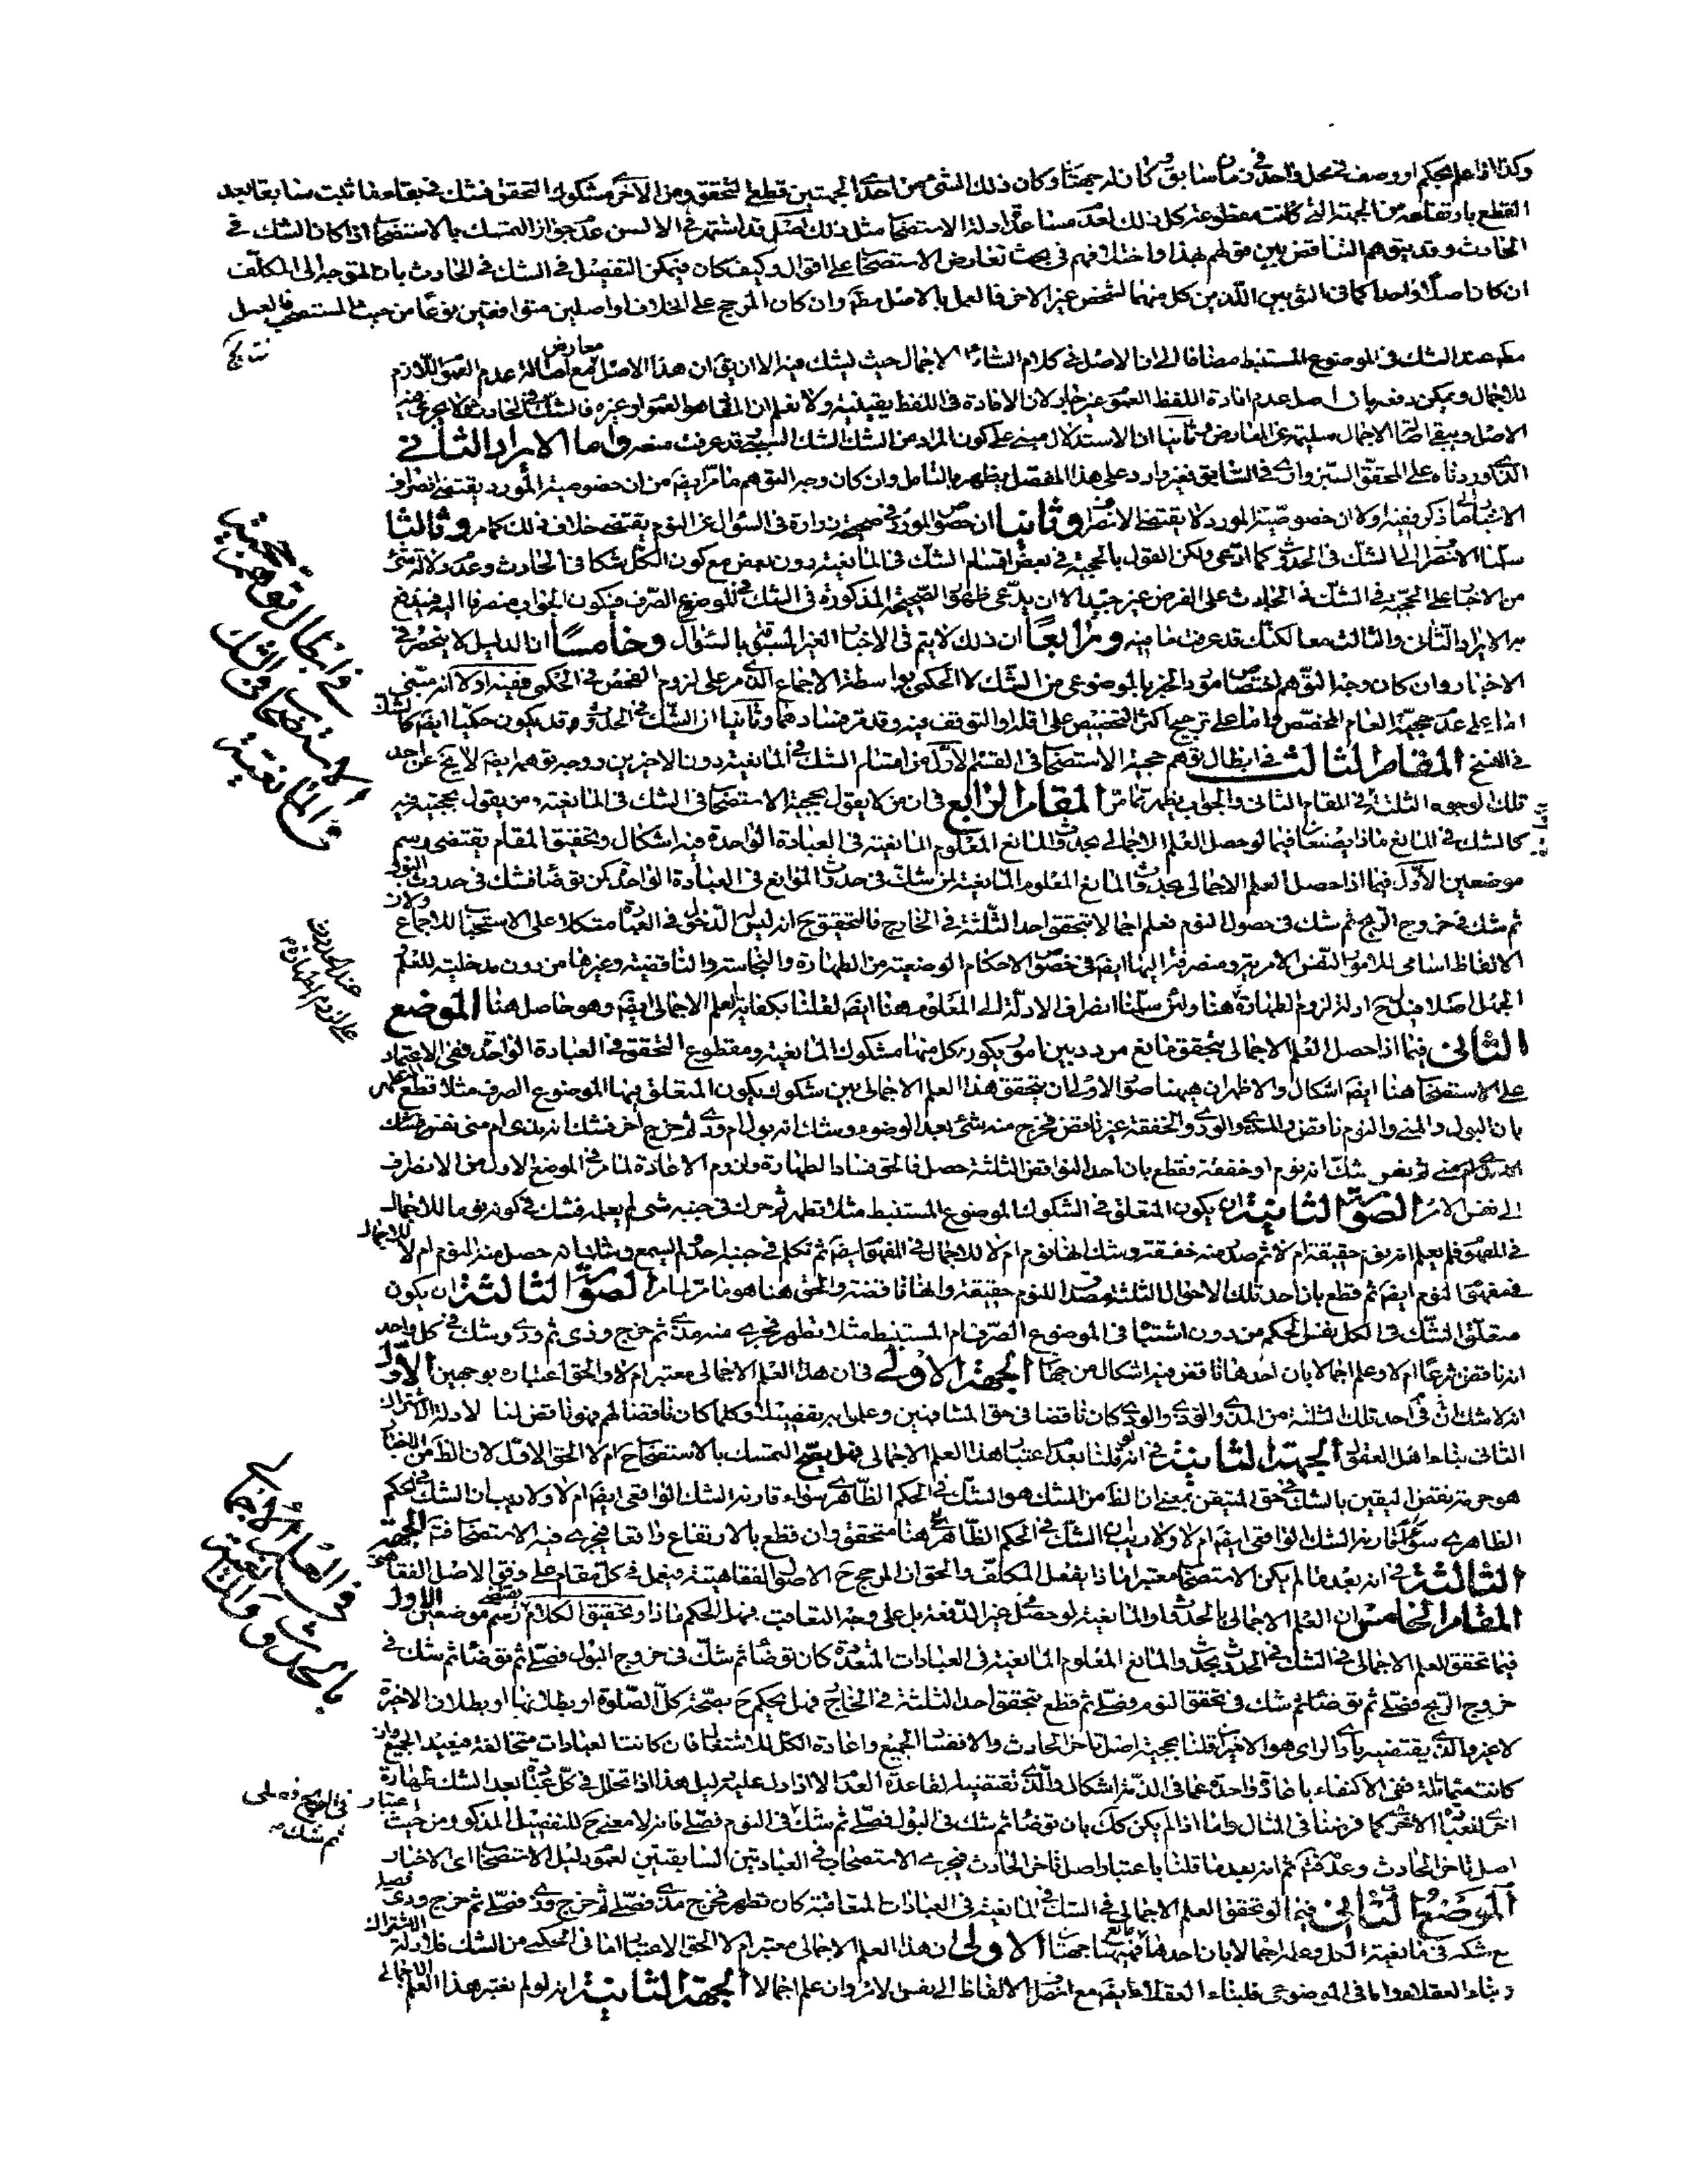 وكذا اذا علم بحكم او وصف فى محل واحد فى زمان سابق وكان له جهتان وكان ذلك الشئ من احدى الجهتين قطعى التحقق ومن الاخرى مشكوك التحقق فشك فى بقاء ما ثبت سابقا بعد
القطع بارتفاعه من الجهة التى كانت مقطوعة كل ذلك لعدم مساعدة ادلة الاستصحاب مثل ذلك اصل قد اشتهر فى الالسن عدم جواز التمسك بالاستصحاب اذا كان الشك فى
الحادث وقد يتوهم التناقض بين قولهم بهذا واختلافهم فى بحث تعارض الاستصحاب على اقوال وكيف كان فيمكن التفصيل فى الشك فى الحادث بان المتوجه الى المكلف
ان كان اصلا واحدا كما فى الثوبين اللذين كل منهما لشخص غير الاخر فالعمل بالاصل مطم وان كان المرجع على الخلاف او اصلين متوافقين نوعا من حيث المستصحب فالعمل
مطم عند الشك فى الموضوع المستنبط مضافا الى ان الاصل فى كلام الشارع الاجمال حيث يشك فيه الا ان يق ان هذا الاصل معارض مع اصالة عدم العموم اللازم
للاجمال ويمكن دفعه بان اصل عدم افادة اللفظ العموم غير جار لان الافادة فى اللفظ يقينية ولا نعلم ان المفاد هو العموم او غيره فالشك فى الحادث فلا يجرى فيه
الاصل ويبقى اصالة الاجمال سليمة عن المعارض وثانيا ان الاستدلال مبنى على كون المراد من الشك الشك السببى قد عرفت ضعفه واما الايراد الثانى
الذى اوردناه على المحقق السبزوارى فى السابق فغير وارد على هذا المفصل ويظهر بالتأمل وان كان وجه التوهم ما مر ايضم من ان خصوصية المورد يقتضى انصراف
الاخبار الى ما ذكر ففيه اولا ان خصوصية المورد لا يقتضى الانصراف وثانيا ان خصوص المورد فى صحيحة زرارة فى السؤال عن النوم يقتضى خلاف ذلك كما مر وثالثا
سلمنا الانصراف الى الشك فى الحدوث كما ادعى ولكن القول بالحجية فى بعض اقسام الشك فى المانعية دون بعض مع كون الكل شكا فى الحادث وعدم دلالة شئ
من الاخبار على الحجية فى الشك فى الحادث على الفرض غير جيد الا ان يدعى ظهور الصحيحة المذكورة فى الشك فى الموضوع الصرف فيكون الجواب منصرفا اليه فيندفع
به الايراد الثانى والثالث معا لكنك قد عرفت ما فيه ورابعا ان ذلك لا يتم فى الاخبار الغير المسبوق بالسؤال وخامسا ان الدليل لا ينحصر فى
الاخبار وان كان وجه التوهم اختصاص مورد الخبر بالموضوعى من الشك لا الحكمى بواسطة الاجماع الذى مر على لزوم الفحص فى الحكمى ففيه اولا انه مبنى
اما على عدم حجية العام المخصص واما على ترجيح اكثر التخصيص على اقله او التوقف فيه وقد مر فسادهما وثانيا ان الشك فى الحدوث قد يكون حكميا ايضم كالشك
فى النسخ المقام الثالث فى ابطال توهم حجية الاستصحاب فى القسم الاول من اقسام الشك فى المانعية دون الاخيرين ووجه توهمه ايضم لا يخ عن احد
تلك الوجوه الثلثة فى المقام الثانى والجواب يظهر مما مر المقام الرابع فى ان من لا يقول بحجية الاستصحاب فى الشك فى المانعية ومن يقول بحجيته فيه
كالشك فى المانع ماذا يصنعان فيما لو حصل العلم الاجمالى بحدوث المانع المعلوم المانعية فى العبادة الواحدة فيه اشكال وتحقيق المقام يقتضى رسم
موضعين الاول فيما اذا حصل العلم الاجمالى بحدوث المانع المعلوم المانعية لمن شك فى حدوث الموانع فى العبادة الواحدة كمن توضأ فشك فى حدوث البول
ثم شك فى خروج الريح ثم شك فى حصول النوم فعلم اجمالا بتحقق احد الثلثة فى الخارج فالتحقيق ح انه ليس الدخول فى العبادة متكلا على الاستصحاب للاجماع ولان
الالفاظ اسامى للامور النفس الامرية ومنصرفة اليها ايضم فى خصوص الاحكام الوضعية من الطهارة والنجاسة والناقضية وغيرها من دون مدخلية للعلم
الجهل اصلا فيدل ح ادلة لزوم الطهارة هنا ولئن سلمنا انصراف الادلة الى المعلوم هنا ايضم لقلنا بكفاية العلم الاجمالى ايضم وهو حاصل هنا الموضع
الثانى فيما اذا حصل العلم الاجمالى بتحقق مانع مردد بين امور يكون كل منها مشكوك المانعية ومقطوع التحقق فى العبادة الواحدة ففى الاعتماد
على الاستصحاب هنا ايضم اشكال والاظهر ان هيهنا صور الاولى ان يتحقق هذا العلم الاجمالى بين شكوك يكون المتعلق فيها الموضوع الصرف مثلا قطع المتطهر
بان البول والمنى والنوم ناقض والمذى والودى والخفقة غير ناقض فخرج منه شئ بعد الوضوء وشك انه بول ام ودى ثم خرج اخر فشك انه مذى ام منى
شك انه نوم او خفقة فقطع بان احد النواقض الثلثة حصل فالحق فساد الطهارة ولزوم الاعادة لما مر فى الموضع الاول من الانصراف
الى نفس الامر الصورة الثانية ان يكون المتعلق فى الشكوك الموضوع المستنبط مثلا تطهر ثم حرك فى جنبه شئ لم يعلم فشك فى كونه نوما للاجمال
فى المفهوم فلم يعلم انه نوم حقيقة ام لا ثم صدر منه خفقة وشك انها نوم ام لا للاجمال فى المفهوم ايضم ثم تكلم فى جنبه احد ولم يسمع وشك انه حصل منه النوم ام لا للاجمال
فى مفهوم النوم ايضم ثم قطع بان احد تلك الاحوال الثلثة مصداق للنوم حقيقة وانها ناقضة والحق هنا هو ما مر لما مر الصورة الثالثة ان يكون
متعلق الشك فى الكل نفس الحكم من دون اشتباه فى الموضوع الصرف ام المستنبط مثلا تطهر فخرج منه مذى ثم خرج وذى ثم ودى وشك فى كل واحد
انه ناقض شرعا ام لا وعلم اجمالا بان احدها ناقض فيه اشكال من جهات الجهة الاولى فى ان هذا العلم الاجمالى معتبر ام لا والحق اعتباره بوجهين الاول
انه لا شك ان فى احد تلك الثلثة من المذى والوذى والودى كان ناقضا فى حق المشافهين وعلموا به تفصيلا وكلما كان ناقضا لهم فهو ناقض لنا لادلة الاشتراك
الثانى بناء اهل العقول الجهة الثانية فى انه لو قلنا بعدم اعتبار هذا العلم الاجمالى فهل يصح التمسك بالاستصحاب ح ام لا الحق الاول لان الظ من الاخبار
هو حرمة نقض اليقين بالشك فى حق المتيقن بمعنى ان الظ من الشك هو الشك فى الحكم الظاهرى سواء قارنه الشك الواقعى ايضم ام لا ولا ريب ان الشك فى الحكم
الظاهرى سواء قارنه الشك الواقعى ايضم ام لا ولا ريب ان الشك فى الحكم الظاهرى هنا متحقق وان قطع بالارتفاع واقعا فيجرى فيه الاستصحاب فتم الجهة
الثالثة فى انه بعد ما لم يكن الاستصحاب معتبرا ماذا يفعل المكلف والحق ان المرجع ح الاصول الفقاهتية فيعمل فى كل مقام على وفق الاصل الفقاهتى
المقام الخامس ان العلم الاجمالى بالحدوث او المانعية لو حصل غير الدفعة بل على وجه التعاقب فهل الحكم ماذا وتحقيق الكلام يقتضى رسم موضعين الاول
فيما تحقق العلم الاجمالى فى الشك فى الحدوث بحدوث المانع المعلوم المانعية فى العبادات المتعددة كان توضأ ثم شك فى خروج البول فصلى ثم توضأ ثم شك فى
خروج الريح فصلى ثم توضأ ثم شك فى تحقق النوم وصلى ثم قطع بتحقق احد الثلثة فى الخارج فهل يحكم ح بصحة كل الصلوة او بطلانها او بطلان الاخيرة
لا غير والذى يقتضيه بادى الراى هو الاخير ان قلنا بحجية اصل تاخر الحادث والا فقضاء الجميع واعادة الكل للاشتغال فان كانت العبادات متخالفة فيعيد الجميع وان
كانت متماثلة ففى الاكتفاء باعادة واحدة عما فى الذمة اشكال والذى تقتضيه القاعدة العدم الا اذا دل عليه دليل هذا اذا تخلل فى كل عبادة بعد الشك طهارة
اخرى للعبادة الاخرى كما فرضنا فى المثال واما اذا لم يكن كك بان توضأ ثم شك فى البول فصلى ثم شك فى النوم فصلى فانه لا معنى ح للتفصيل المذكور من حيث اعتبار
اصل تاخر الحادث وعدمه ثم انه بعد ما قلنا باعتبار اصل تاخر الحادث فيجرى الاستصحاب فى العبادتين السابقتين لعموم دليل الاستصحاب اى الاخبار
الموضع الثانى فيما لو تحقق العلم الاجمالى فى الشك فى المانعية فى العبادات المتعاقبة كان تطهر فخرج مذى فصلى ثم خرج وذى فصلى ثم خرج ودى فصلى
مع شكه فى مانعية الكل وعلم اجمالا بان احدها مانع فهيهنا جهات الاولى ان هذا العلم الاجمالى معتبر ام لا الحق الاعتبار اما فى الحكمى من الشك فلادلة الاشتراك
وبناء العقلاء واما فى الموضوعى فلبناء العقلاء ايضم مع انصراف الالفاظ الى نفس الامر وان علم اجمالا الجهة الثانية انه لو لم نعتبر هذا العلم الاجمالى
فى ابطال توهم حجية
الاستصحاب فى الشك
فى المانعية
عند الحدوث
على لزوم الطهارة
فى العلم الاجمالى
بالحدوث والمانعية
ثم شك